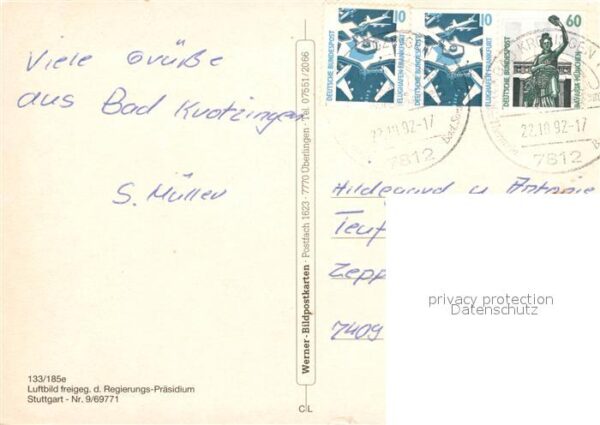 Viele Grüße
aus Bad Krotzingen
S. Müller
133/185e
Luftbild freigeg. d. Regierungs-Präsidium
Stuttgart - Nr. 9/69771
Werner-Bildpostkarten · Postfach 1623 · 7770 Überlingen · Tel. 07551/2066
C/L
10
DEUTSCHE BUNDESPOST
FLUGHAFEN FRANKFURT
10
DEUTSCHE BUNDESPOST
FLUGHAFEN FRANKFURT
60
DEUTSCHE BUNDESPOST
BAVARIA MÜNCHEN
22.10.92-17
7812
22.10.92-17
7812
Hildegard u
Teuf
Zepp
7409
privacy protection
Datenschutz